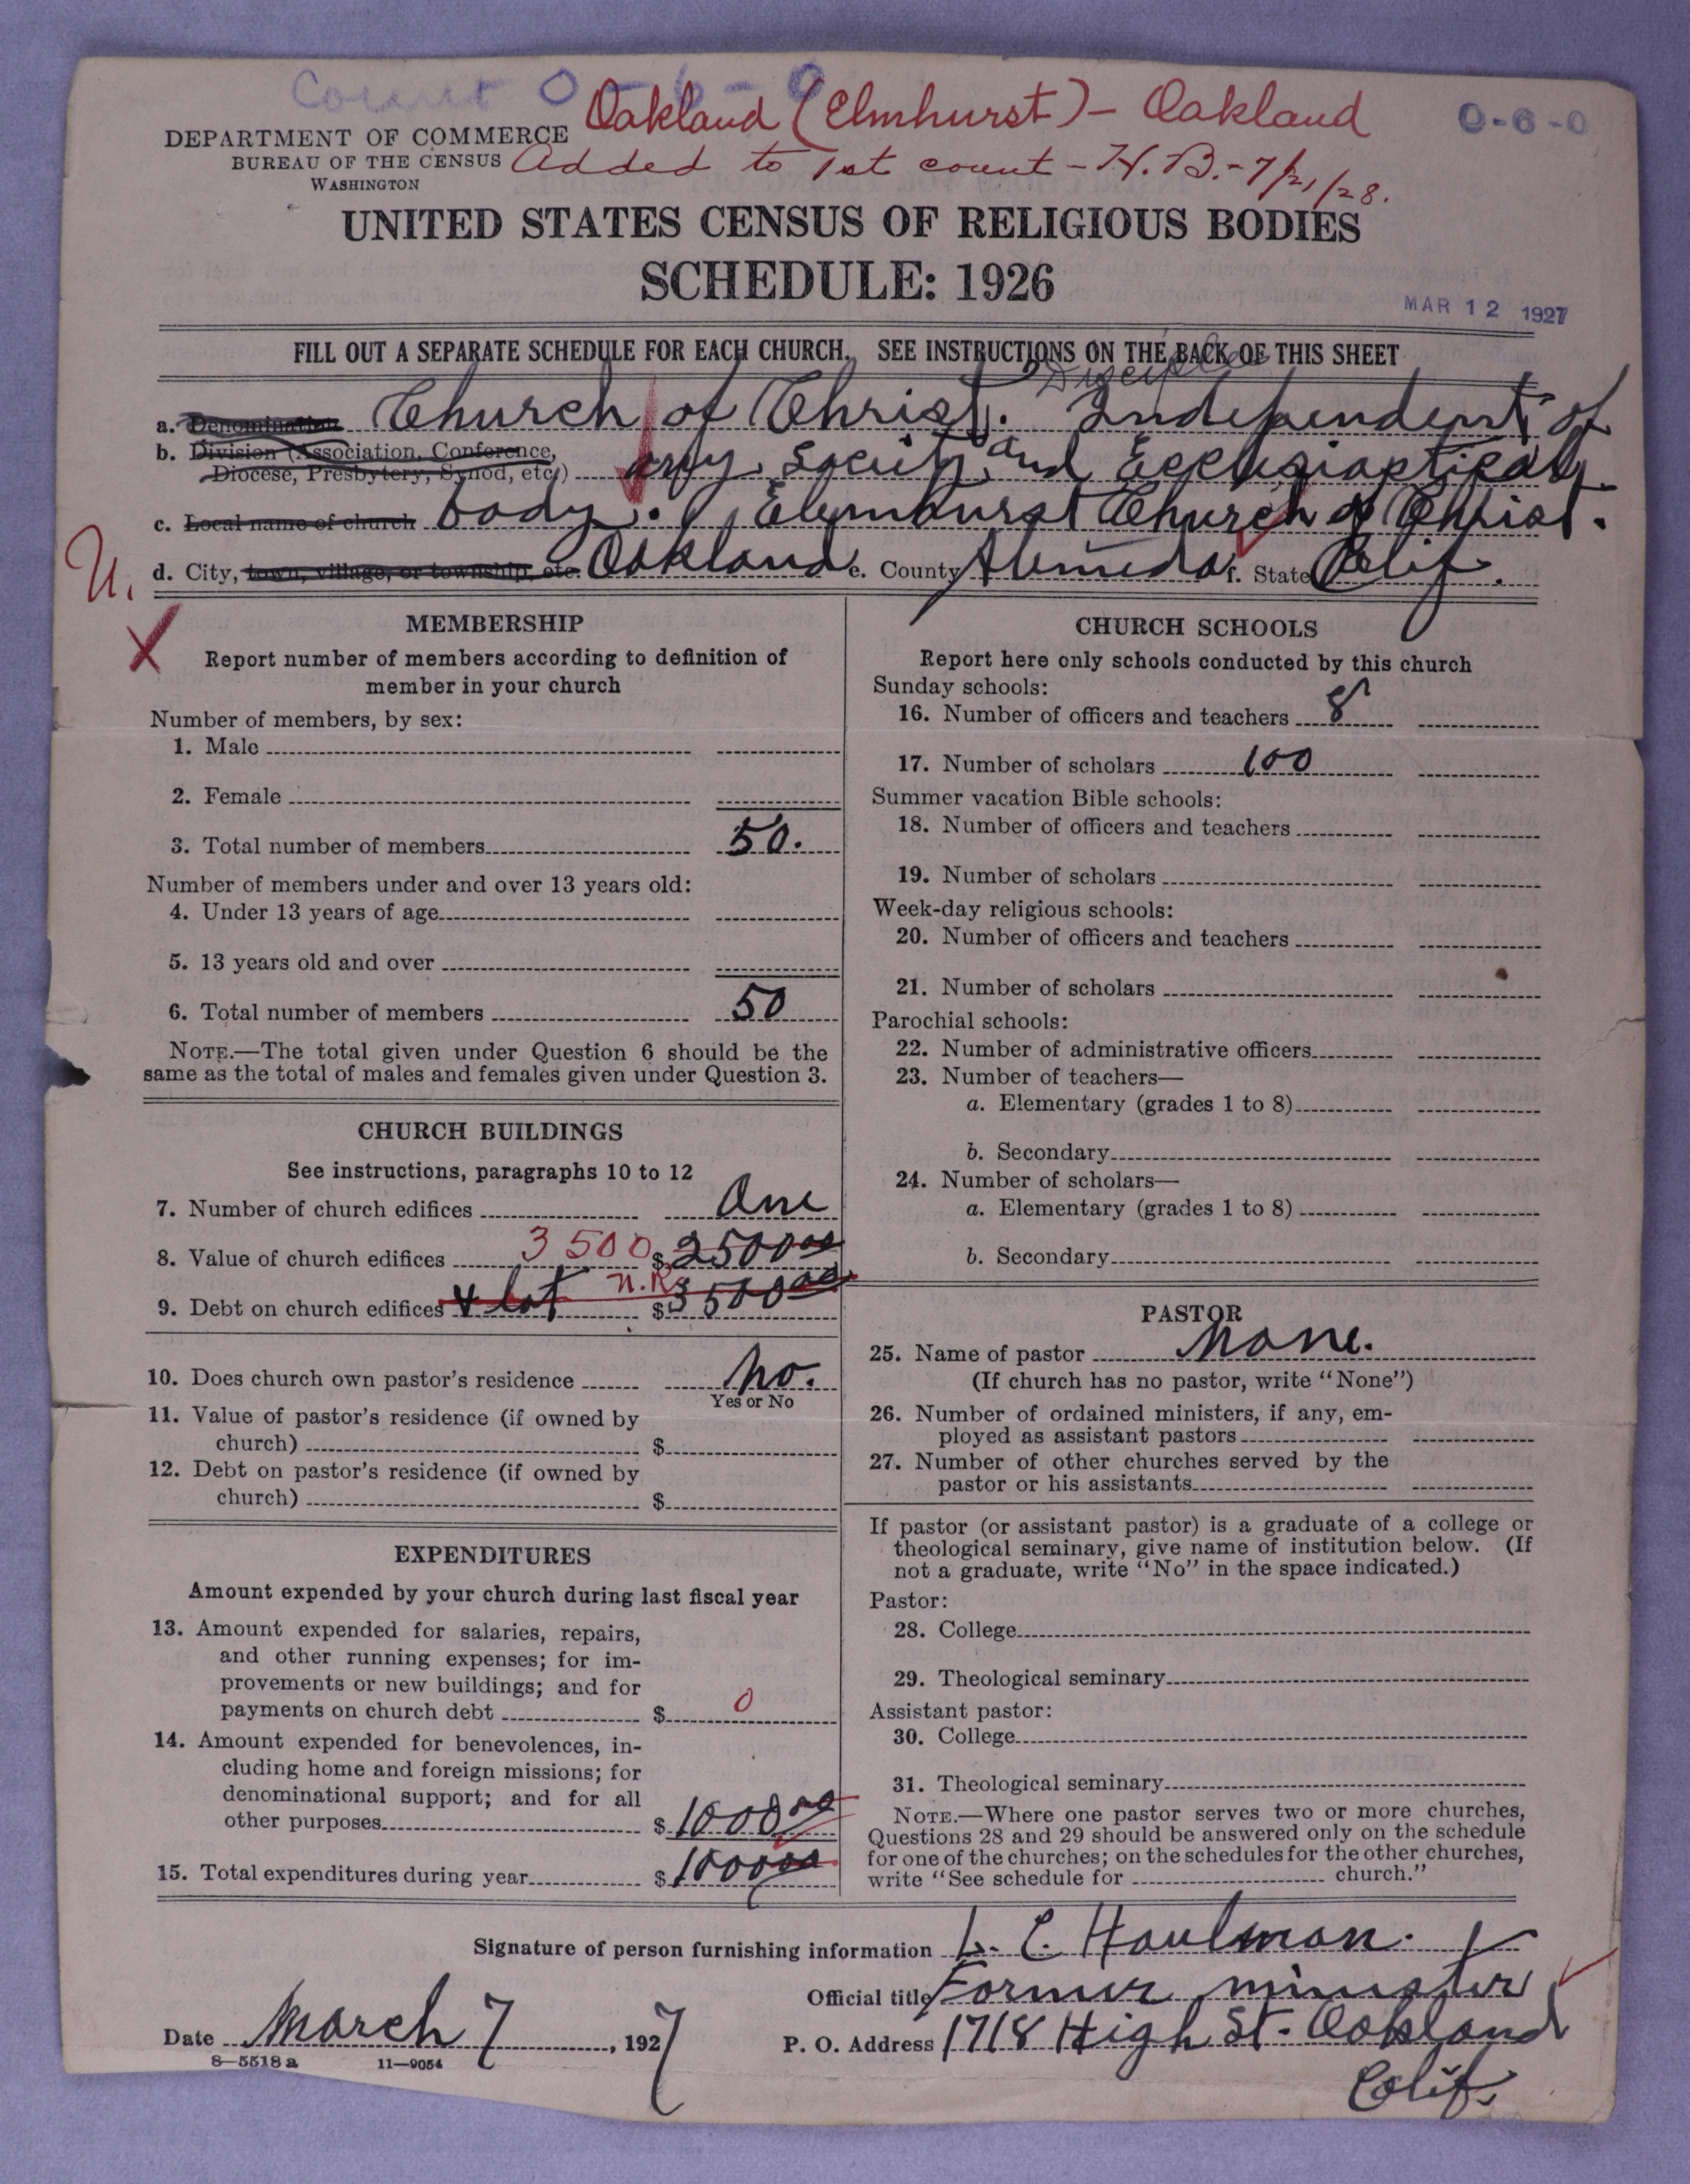 Count 0-6-0
Oakland (Elmhurst) - Oakland
0-6-0
DEPARTMENT OF COMMERCE
BUREAU OF THE CENSUS
WASHINGTON
Added to 1st count - H.B. - 7/21/28.
UNITED STATES CENSUS OF RELIGIOUS BODIES
SCHEDULE: 1926
MAR 12 1927
FILL OUT A SEPARATE SCHEDULE FOR EACH CHURCH. SEE INSTRUCTIONS ON THE BACK OF THIS SHEET
a. Denomination Church of Christ. Independent of
b. Division (Association, Conference,
Diocese, Presbytery, Synod, etc.) any Society and Ecclesiaptical
c. Local name of church body. Elmhurst Church of Christ.
U.
d. City, town, village, or township, etc. Oakland e. County Alameda f. State Calif.
X
MEMBERSHIP
Report number of members according to definition of
member in your church
Number of members, by sex:
1. Male
2. Female
3. Total number of members 50.
Number of members under and over 13 years old:
4. Under 13 years of age
5. 13 years old and over
6. Total number of members 50
NOTE.—The total given under Question 6 should be the
same as the total of males and females given under Question 3.
CHURCH BUILDINGS
See instructions, paragraphs 10 to 12
7. Number of church edifices One
8. Value of church edifices 3500 $2500 00
9. Debt on church edifices & lot n.R. $3500 00
10. Does church own pastor's residence No.
Yes or No
11. Value of pastor's residence (if owned by
church) $
12. Debt on pastor's residence (if owned by
church) $
EXPENDITURES
Amount expended by your church during last fiscal year
13. Amount expended for salaries, repairs,
and other running expenses; for im-
provements or new buildings; and for
payments on church debt $ 0
14. Amount expended for benevolences, in-
cluding home and foreign missions; for
denominational support; and for all
other purposes $1000 00
15. Total expenditures during year $1000 00
CHURCH SCHOOLS
Report here only schools conducted by this church
Sunday schools:
16. Number of officers and teachers 8
17. Number of scholars 100
Summer vacation Bible schools:
18. Number of officers and teachers
19. Number of scholars
Week-day religious schools:
20. Number of officers and teachers
21. Number of scholars
Parochial schools:
22. Number of administrative officers
23. Number of teachers—
a. Elementary (grades 1 to 8)
b. Secondary
24. Number of scholars—
a. Elementary (grades 1 to 8)
b. Secondary
PASTOR
25. Name of pastor None.
(If church has no pastor, write "None")
26. Number of ordained ministers, if any, em-
ployed as assistant pastors
27. Number of other churches served by the
pastor or his assistants
If pastor (or assistant pastor) is a graduate of a college or
theological seminary, give name of institution below. (If
not a graduate, write "No" in the space indicated.)
Pastor:
28. College
29. Theological seminary
Assistant pastor:
30. College
31. Theological seminary
NOTE.—Where one pastor serves two or more churches,
Questions 28 and 29 should be answered only on the schedule
for one of the churches; on the schedules for the other churches,
write "See schedule for church."
Signature of person furnishing information L. C. Haulman.
Official title Former minister
Date March 7, 1927
P. O. Address 1718 High St. Oakland
Calif.
8—5518 a 11—9054